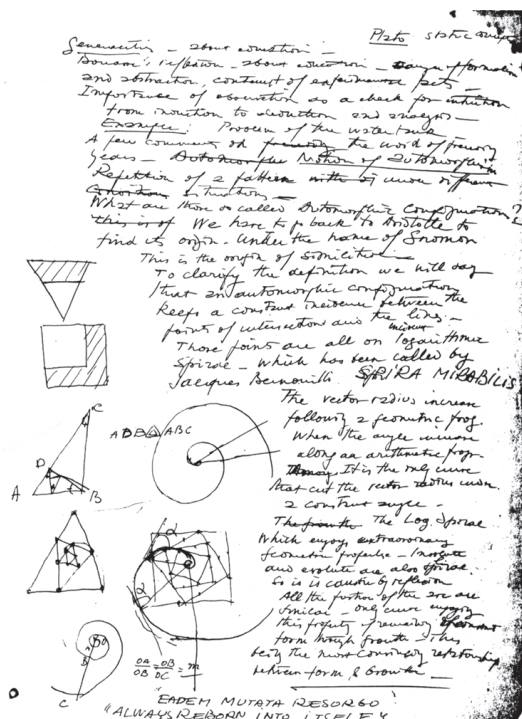 Plato static
Generacting - about equation -
reflection - about education - danger of formalism
and abstraction, contempt of experimental facts -
Importance of observation as a check for intuition
from induction to deduction and analysis -
Example: Problem of the water
A few comments on the work of previous
years - Notion of automorphism
Repetition of a pattern under different
situations -
What are those so called Automorphic Configurations?
this is of We have to go back to Aristotle to
find its origin. Under the name of Gnomon
This is the origin of similitude
To clarify the definition we will say
that an automorphic configuration
keeps a constant incidence between the
points of intersection and the lines -
Those points are all on logarithmic
Spirae - which has been called by
Jacques Bernouilli SPIRA MIRABILIS
The vector radius increase
following a geometric prog.
When the angle increase
along an arithmetic prog -
It is the only curve
that cut the vector radius under
a constant angle -
The Log. Spirae
Which enjoys extraordinary
geometric properties - Involute
and evolute are also Spirae.
So is is caustic by reflexion
All the portion of the are
similar - only curve enjoying
this property of remaining
form through growth - This
being the most convincing relationship
between form & Growth -
C
D
A B
ADB △ ABC
α
α
OA/OB = OB/OC = m
C
"EADEM MUTATA RESORGO
"ALWAYS REBORN INTO ITSELF"